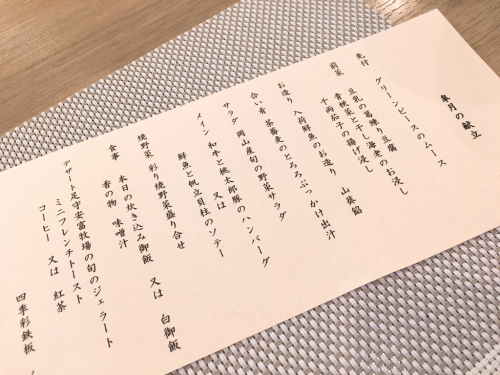 皐月の献立
先付 グリーンピースのムース
前菜 豆乳の葛練り豆腐 山葵餡
青梗菜と干し海老のお浸し
千両茄子の揚げ浸し
お造り 入荷鮮魚のお造り
合い肴 茶蕎麦のとろろぶっかけ出汁
サラダ 岡山産旬の野菜サラダ
メイン 和牛と桃太郎豚のハンバーグ
又は
鮮魚と帆立貝柱のソテー
焼野菜 彩り焼野菜盛り合せ
食事 本日の炊き込み御飯 又は 白御飯
香の物 味噌汁
デザート 足守安富牧場の旬のジェラート
ミニフレンチトースト
コーヒー 又は 紅茶
四季彩鉄板